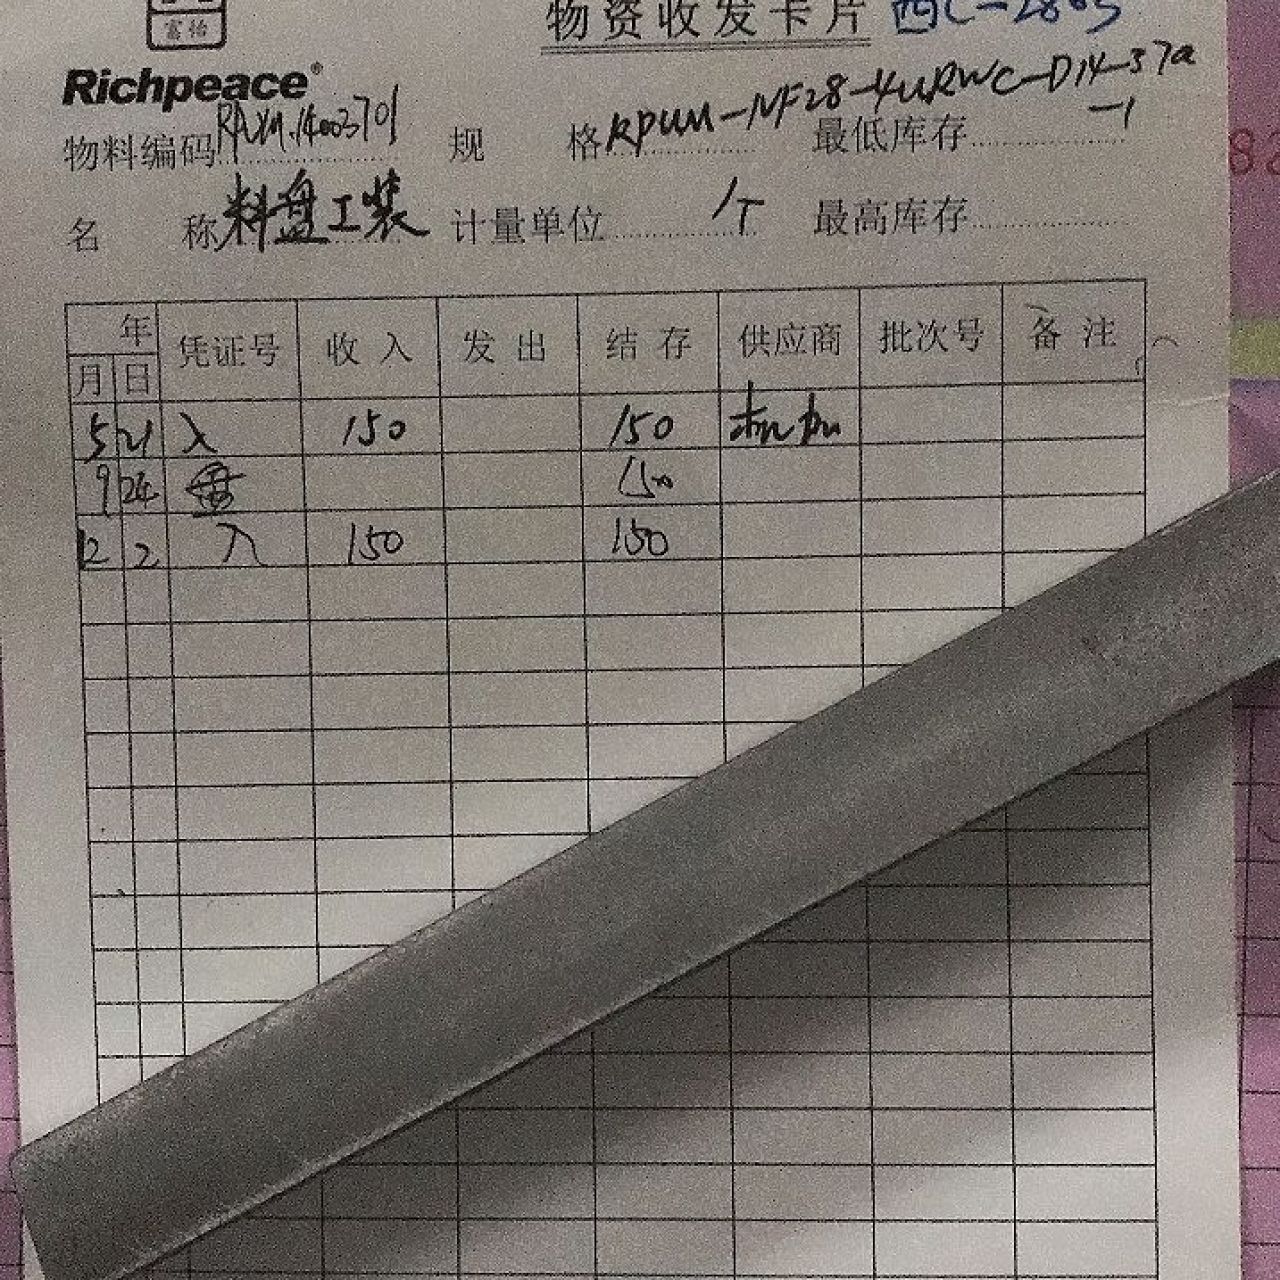 富怡
物资收发卡片 西C-2805
Richpeace®
物料编码 规格 RPUM-NF28-4URWC-D14-37a
-1
最低库存
名称 料盘工装 计量单位 个 最高库存
年 凭证号 收入 发出 结存 供应商 批次号 备注
月 日
5 21 入 150 150
9 24 盘 150
12 2 入 150 150